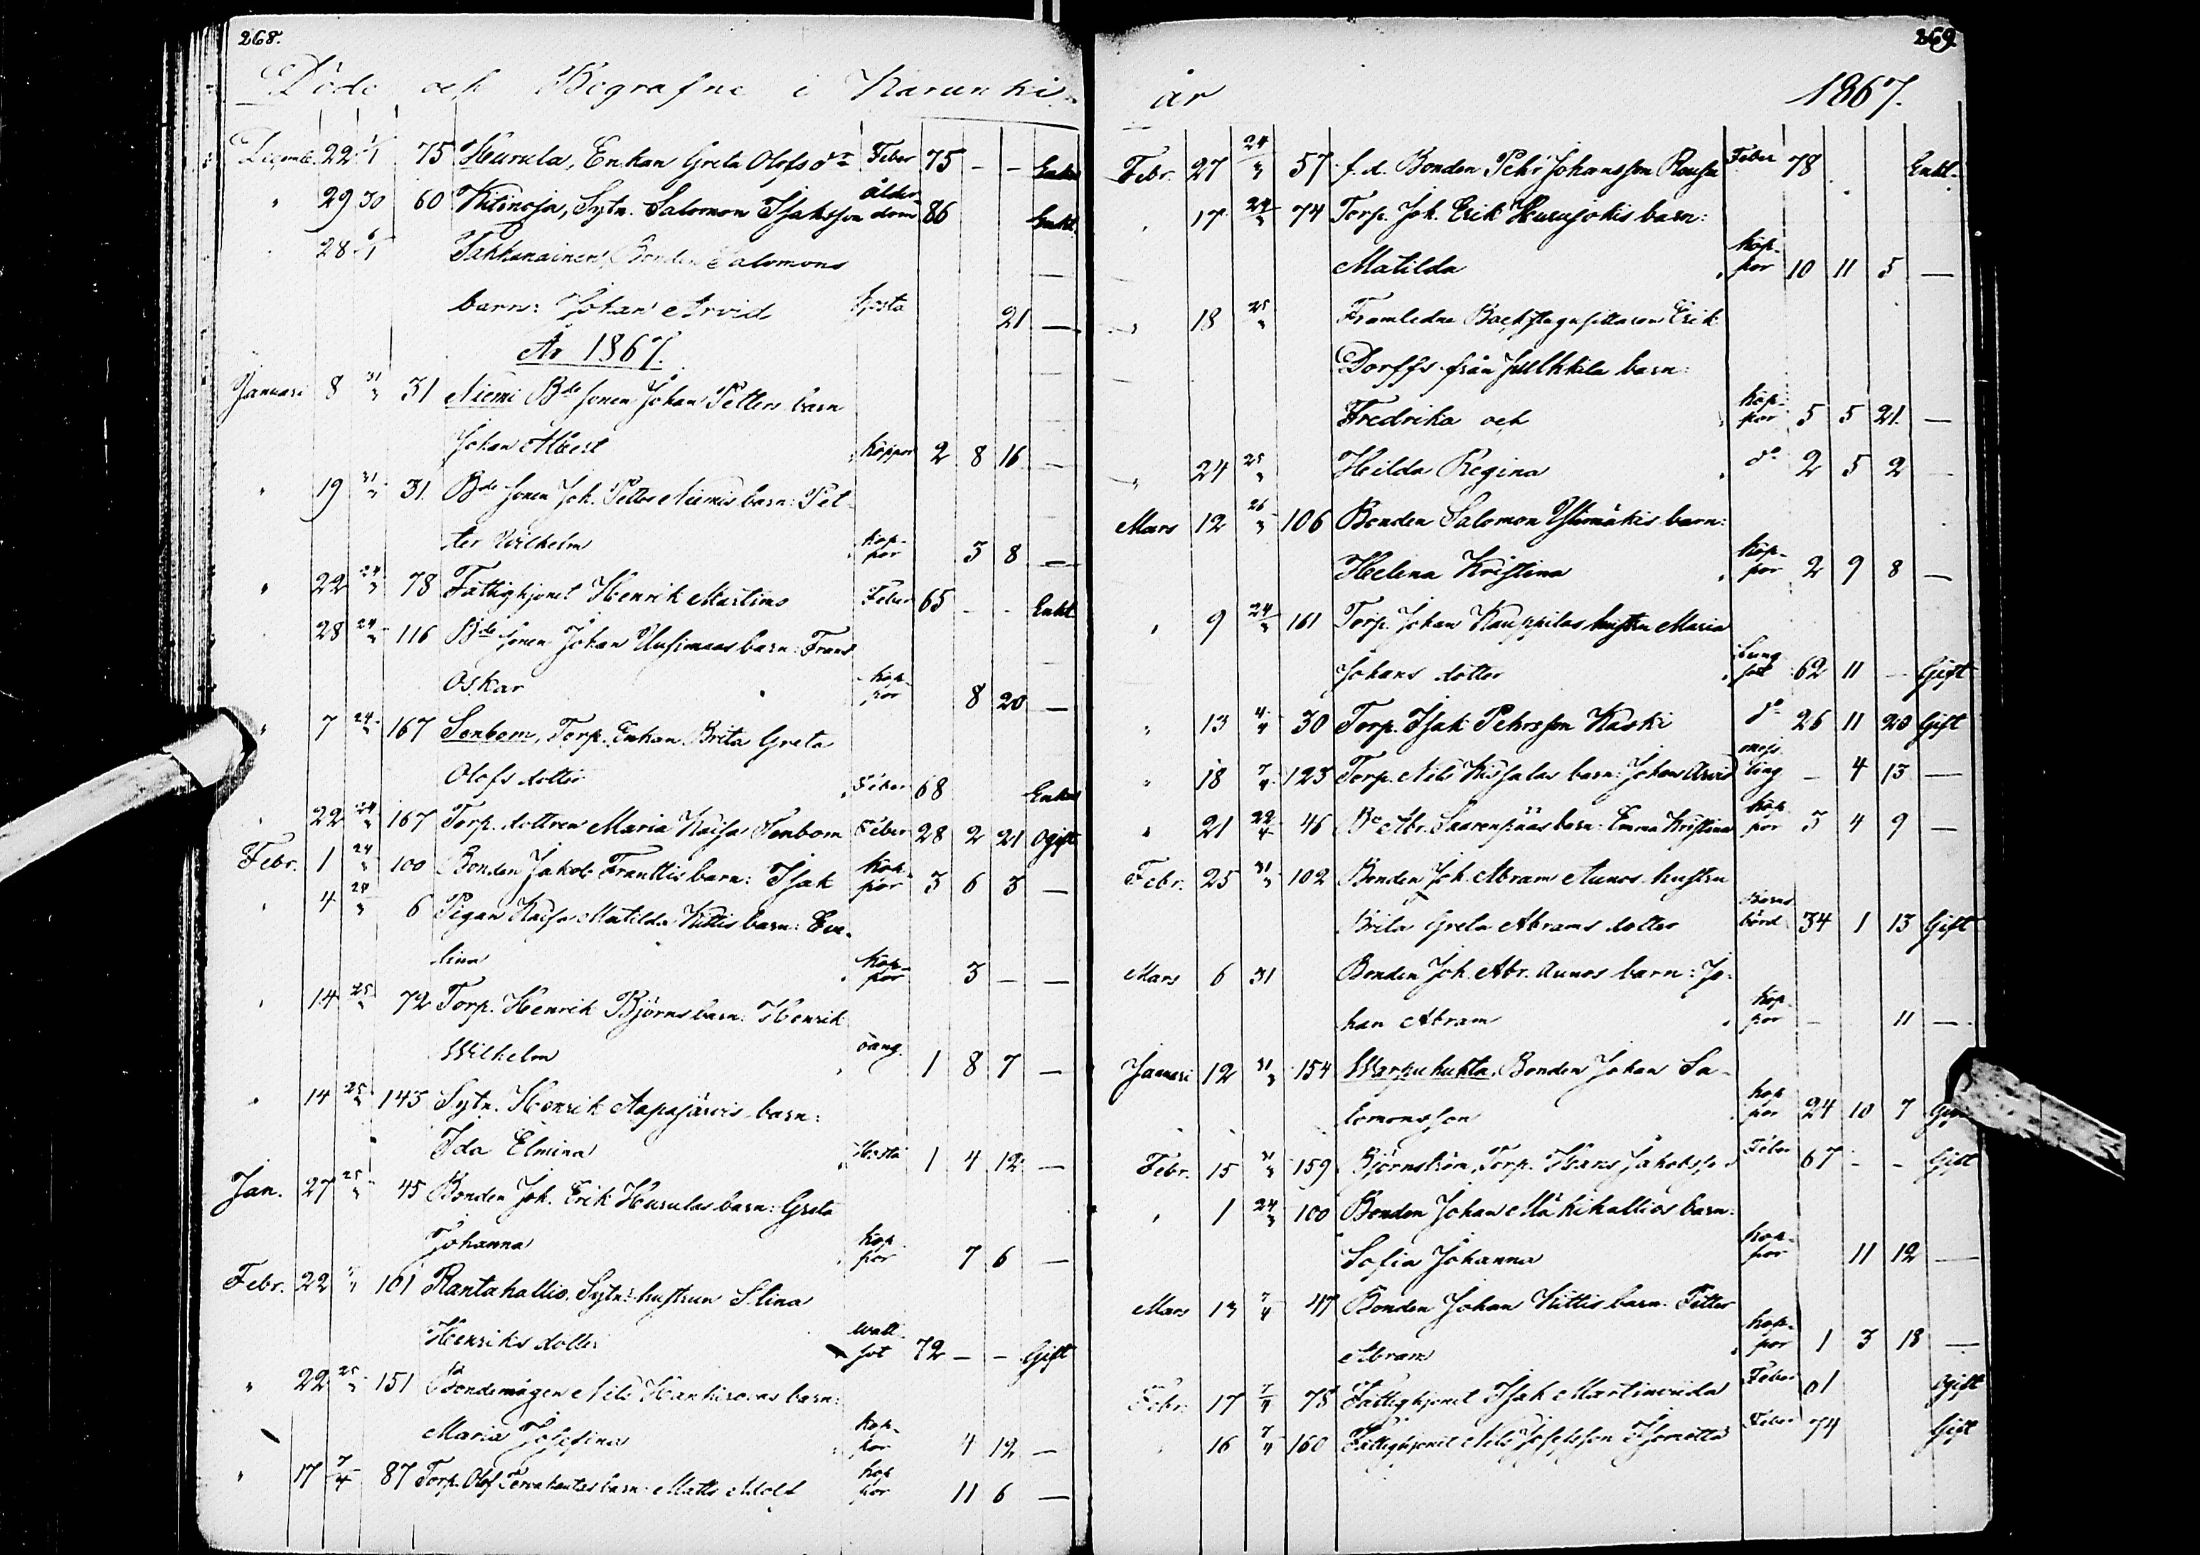 268.
Döde och Begrafne i Karunki
Decemb. 22 1/1 75 Hurula, Enkan Greta Olofs dr Feber 75 - - Enka
" 29 30 60 Kitinoja, Sytn. Salomon Isaksson ålderdom 86 Enkl.
28 6/1 Takkanainen, Bonden Salomons
barn: Johan Arvid hosta 21 —
År 1867.
Januari 8 31/3 31 Niemi Bde sonen Johan Petters barn
Johan Albert koppor 2 8 16 —
" 19 31/3 31. Bde sonen Joh. Petter Niemis barn: Pet-
ter Wilhelm koppor 3 8 —
" 22 24/3 78 Fattighjonet Henrik Martimo Feber 65 - - Enkl
28 24/3 116 Bde sonen Johan Uusimaas barn: Frans
Oskar koppor 8 20 —
" 7 24/3 167 Senbom, Torp. Enkan Brita Greta
Olofs dotter Feber 68 Enka
22 24/3 167 Torp. dottren Maria Kaisa Senbom Feber 28 2 21 Ogift
Febr. 1 24/3 100 Bonden Jakob Franttis barn: Isak koppor 3 6 3 —
" 4 24/3 6 Pigan Kaisa Matilda Kittis barn: Eve-
lina koppor 3 — —
" 14 25/3 72 Torp. Henrik Björns barn: Henrik
Wilhelm oang. 1 8 7 —
" 14 25/3 143 Sytn. Henrik Aapajärvis barn:
Ida Elmina Hosta 1 4 12 —
Jan. 27 25/3 45 Bonden Joh. Erik Hurulas barn: Greta
Johanna koppor 7 6 —
Febr. 22 161 Rantakallio, Sytn: hustrun Stina
Henriks dotter wattsot 72 — — Gift
" 22 25/3 151 Bondemågen Nils barn:
Maria Josefina koppor 4 12 —
" 17 7/4 87 Torp. Olof barn: Matts Adolf koppor 11 6 —
269.
år 1867.
Febr. 27 24/3 57 f.d. Bonden Pehr Johansson Feber 78 Enkl.
" 17 24/3 74 Torp. Joh. Erik Hurujokis barn:
Matilda koppor 10 11 5 —
" 18 25/3 Framledne Backstugusittaren Erik
Dorffs från barn:
Fredrika och koppor 5 5 21. —
" 24 25/3 Hilda Regina do 2 5 2 —
Mars 12 26/3 106 Bonden Salomon Ylimäkis barn:
Helena Kristina koppor 2 9 8 —
" 9 24/3 161 Torp. Johan Kauppilas hustru Maria
Johans dotter Lungsot 62 11 — Gift
" 13 4/4 30 Torp. Isak Pehrsson Kaski do 26 11 20 Gift
" 18 7/4 123 Torp. Nils barn: Johan Arvid messling — 4 13 —
" 21 22/4 46 Be Abr. Saarenpääs barn: Emma Kristina koppor 3 4 9 —
Febr. 25 31/3 102 Bonden Joh. Abram Aunos hustru
Brita Greta Abrams dotter Barnsbörd 34 1 13 Gift
Mars 6 31 Bonden Joh. Abr. Aunos barn: Jo-
han Abram koppor — 11 —
Januari 12 31/3 154 Warpuhukta, Bonden Johan Sa-
lomonsson koppor 24 10 7 Gift
Febr. 15 31/3 159 Björnström, Torp. Hans Jakobsson Feber 67 - - Gift
" 1 24/3 100 Bonden Johan Mäkikallios barn:
Sofia Johanna koppor 11 12 —
Mars 13 7/4 47 Bonden Johan Kittis barn: Petter
Abram koppor 1 3 18 —
Febr. 17 7/4 75 Fattighjonet Isak Feber 61 Ogift
16 7/4 160 Fattighjonet Nils Josefsson Feber 74 Gift